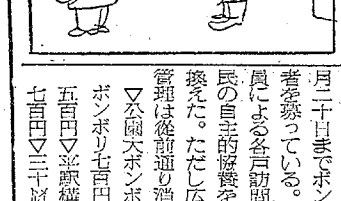 月二十日までボン
者を募っている。
員による各戸訪問
民の自主的協賛を
換えた。ただし広
管理は従前通り消
▽公園大ボンボ
ボンボリ七百円
五百円▽平駅構
七百円▽三十以